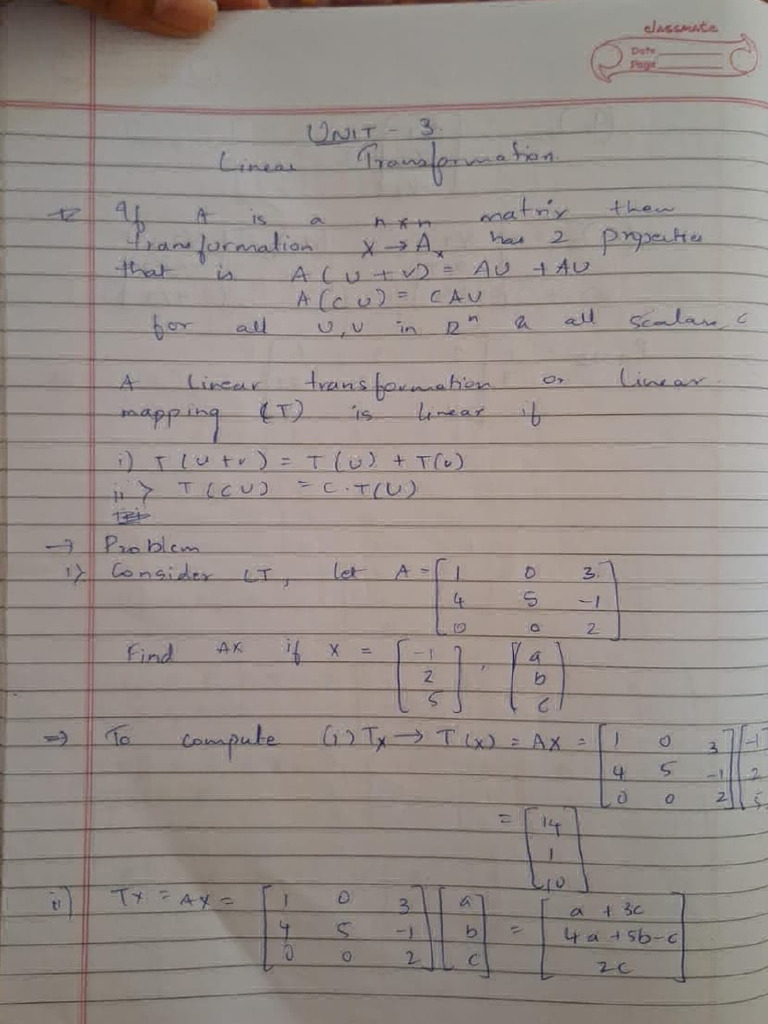 classmate
Date
Page
UNIT - 3
Linear Transformation
If A is a n×n matrix then
transformation X → Aₓ has 2 properties
that is A(U+V) = AU + AU
A(CU) = CAU
for all U,V in Rⁿ & all scalars c
A linear transformation or linear
mapping (T) is linear if
i) T(U+V) = T(U) + T(V)
ii> T(CU) = C.T(U)
→ Problem
1> Consider LT, let A = [1 0 3
4 5 -1
0 0 2]
Find AX if X = [-1
2
5] , [a
b
c]
⇒ To compute (i) Tx → T(x) = AX = [1 0 3
4 5 -1
0 0 2] [-1
2
5
= [14
1
10]
ii) Tx = AX = [1 0 3
4 5 -1
0 0 2] [a
b
c] = [a + 3c
4a + 5b - c
2c]